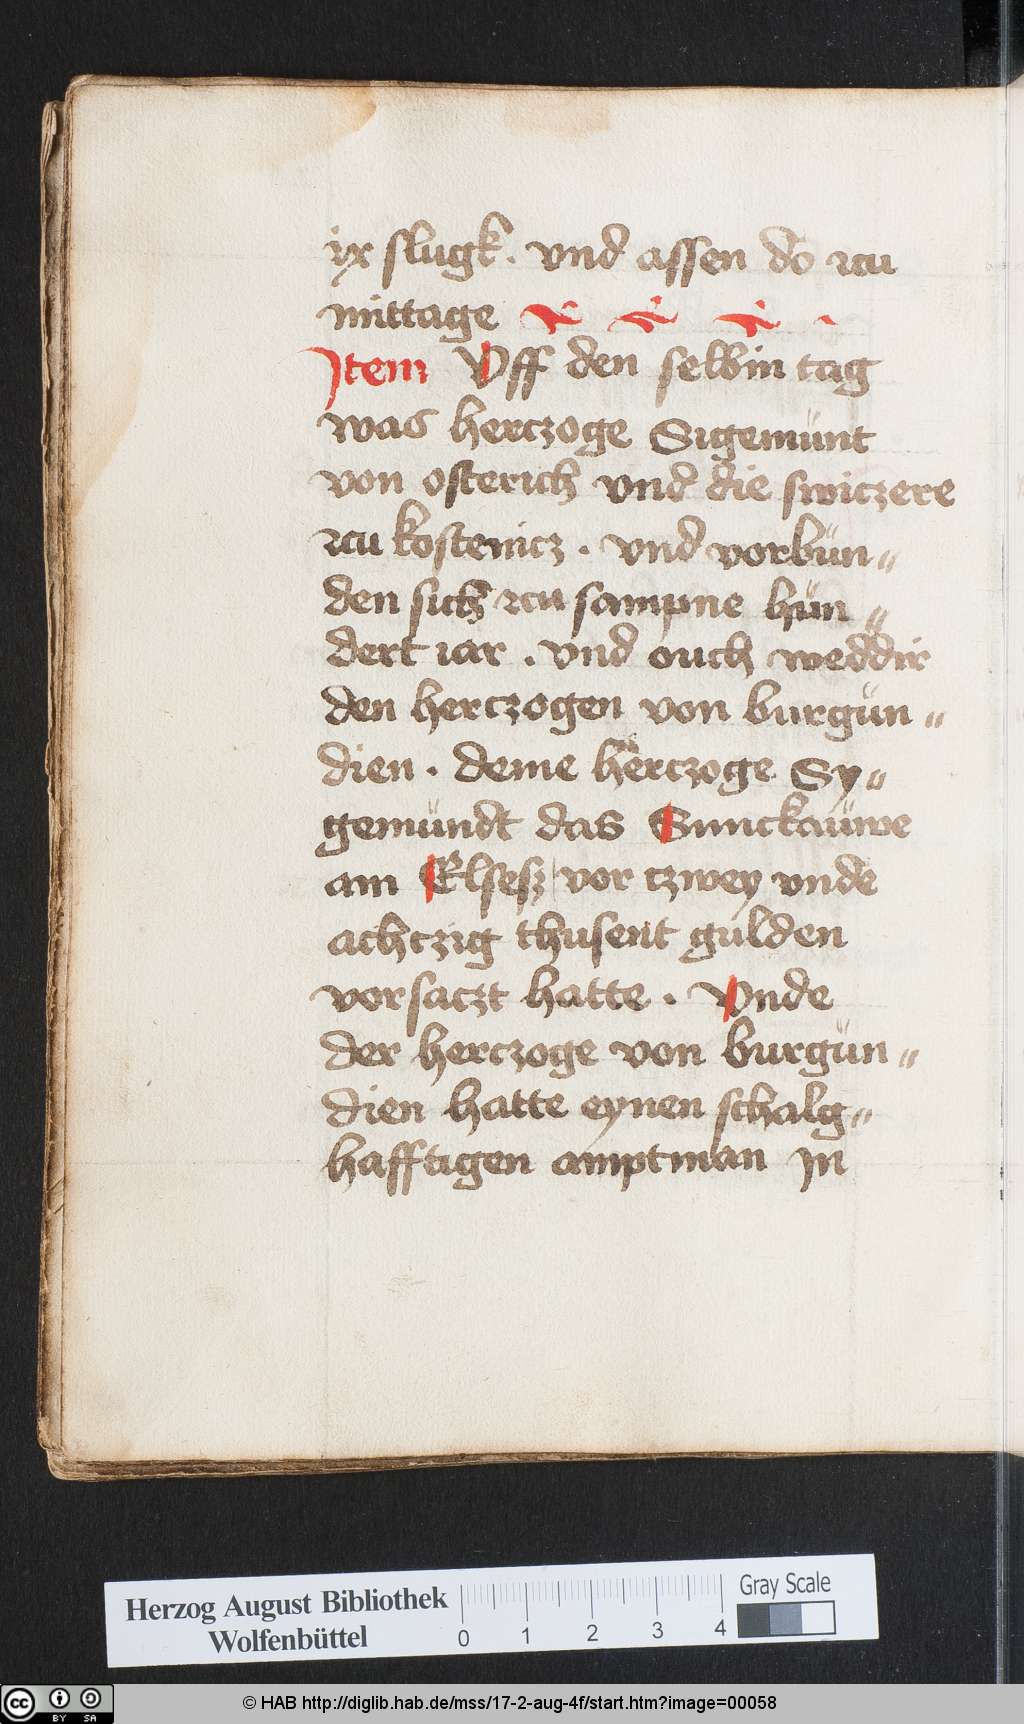 ix slugk. vnd assen do zcu
mittage
Item Vff den selbin tag
was herczoge Sigemünt
von osterich vnd die switczere
zcu kostenicz . vnd vorbün„
den sich zcu sampne hün„
dert iar . vnd ouch weddir
den herczogen von burgün„
dien . deme herczoge Sy„
gemündt das Sunckaüwe
am Elsesz vor tzwey vnde
achczig thusent gulden
vorsaczt hatte . Vnde
der herczoge von burgün„
dien hatte eynen schalg„
hafftigen amptman in
Herzog August Bibliothek
Wolfenbüttel
0 1 2 3 4
Gray Scale
cc BY SA
© HAB http://diglib.hab.de/mss/17-2-aug-4f/start.htm?image=00058